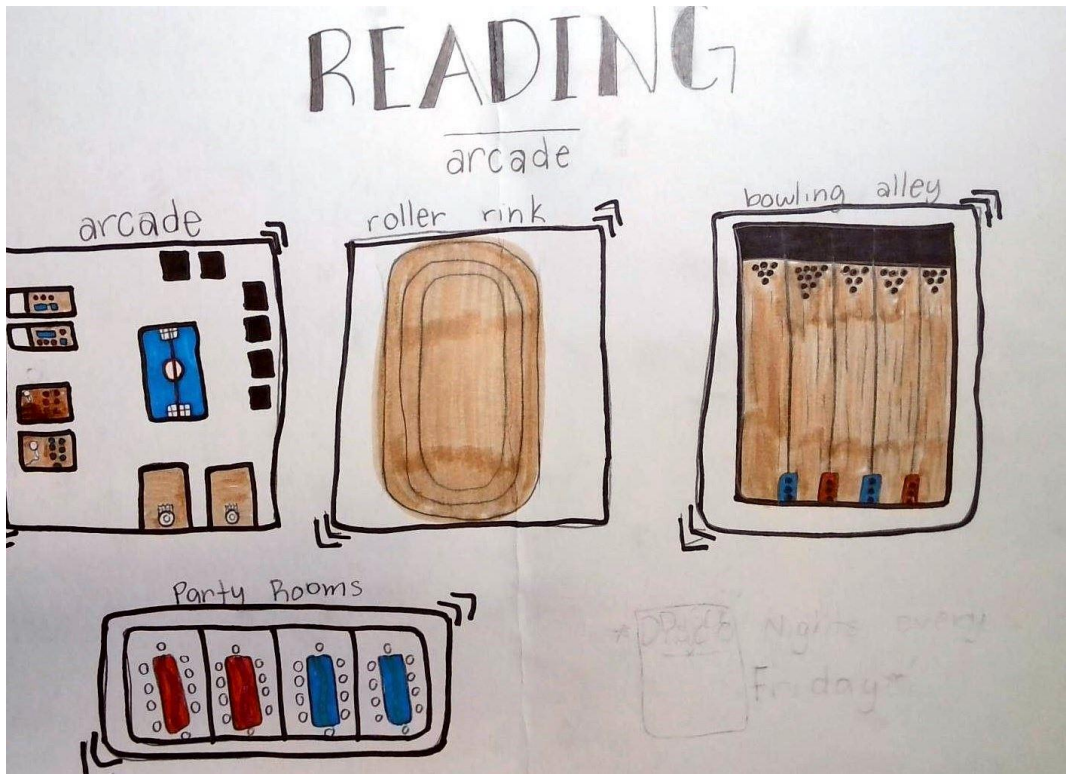 READING
arcade
arcade
roller rink
bowling alley
Party Rooms
Nights every
Friday*